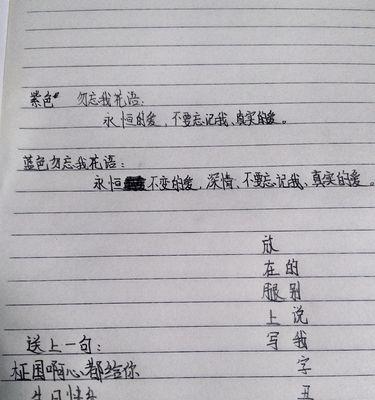 紫色 勿忘我花语:
永恒的爱,不要忘记我、真实的爱。
蓝色勿忘我花语:
永恒不变的爱,深情、不要忘记我、真实的爱。
放在腿上写
的别说我字丑
送上一句:
柾国啊心都给你
生日快乐